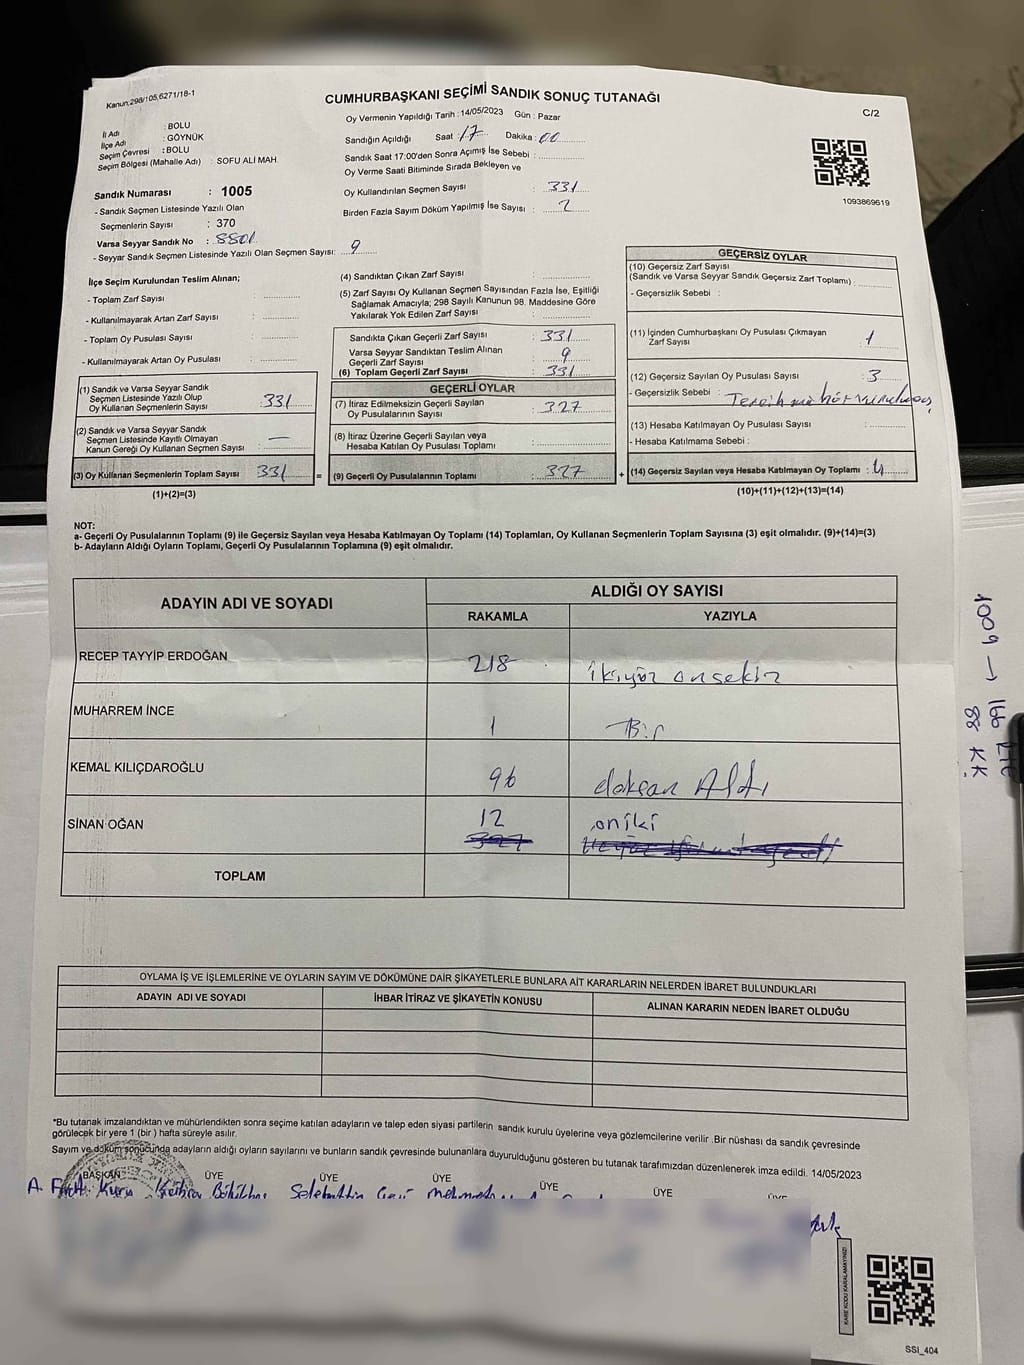 Kanun,298/105,6271/18-1
CUMHURBAŞKANI SEÇİMİ SANDIK SONUÇ TUTANAĞI
C/2
Oy Vermenin Yapıldığı Tarih : 14/05/2023 Gün : Pazar
İl Adı : BOLU
İlçe Adı : GÖYNÜK
Seçim Çevresi : BOLU
Seçim Bölgesi (Mahalle Adı) : SOFU ALİ MAH.
Sandığın Açıldığı Saat : 17 Dakika : 00
Sandık Saat 17:00'den Sonra Açımış İse Sebebi :
Oy Verme Saati Bitiminde Sırada Bekleyen ve
Oy Kullandırılan Seçmen Sayısı : 331
Birden Fazla Sayım Döküm Yapılmış İse Sayısı : 2
1093869619
Sandık Numarası : 1005
- Sandık Seçmen Listesinde Yazılı Olan
Seçmenlerin Sayısı : 370
Varsa Seyyar Sandık No : 8801
- Seyyar Sandık Seçmen Listesinde Yazılı Olan Seçmen Sayısı: 9
İlçe Seçim Kurulundan Teslim Alınan;
- Toplam Zarf Sayısı :
- Kullanılmayarak Artan Zarf Sayısı :
- Toplam Oy Pusulası Sayısı :
- Kullanılmayarak Artan Oy Pusulası :
(1) Sandık ve Varsa Seyyar Sandık
Seçmen Listesinde Yazılı Olup
Oy Kullanan Seçmenlerin Sayısı : 331
(2) Sandık ve Varsa Seyyar Sandık
Seçmen Listesinde Kayıtlı Olmayan
Kanun Gereği Oy Kullanan Seçmen Sayısı : —
(3) Oy Kullanan Seçmenlerin Toplam Sayısı 331 =
(1)+(2)=(3)
(4) Sandıktan Çıkan Zarf Sayısı :
(5) Zarf Sayısı Oy Kullanan Seçmen Sayısından Fazla İse, Eşitliği
Sağlamak Amacıyla; 298 Sayılı Kanunun 98. Maddesine Göre
Yakılarak Yok Edilen Zarf Sayısı :
Sandıkta Çıkan Geçerli Zarf Sayısı : 331
Varsa Seyyar Sandıktan Teslim Alınan
Geçerli Zarf Sayısı : 9
(6) Toplam Geçerli Zarf Sayısı : 331
GEÇERLİ OYLAR
(7) İtiraz Edilmeksizin Geçerli Sayılan
Oy Pusulalarının Sayısı : 327
(8) İtiraz Üzerine Geçerli Sayılan veya
Hesaba Katılan Oy Pusulası Toplamı :
(9) Geçerli Oy Pusulalarının Toplamı : 327 +
GEÇERSİZ OYLAR
(10) Geçersiz Zarf Sayısı
(Sandık ve Varsa Seyyar Sandık Geçersiz Zarf Toplamı) :
- Geçersizlik Sebebi :
(11) İçinden Cumhurbaşkanı Oy Pusulası Çıkmayan
Zarf Sayısı : 1
(12) Geçersiz Sayılan Oy Pusulası Sayısı : 3
- Geçersizlik Sebebi : Tercih
(13) Hesaba Katılmayan Oy Pusulası Sayısı :
- Hesaba Katılmama Sebebi :
(14) Geçersiz Sayılan veya Hesaba Katılmayan Oy Toplamı : 4
(10)+(11)+(12)+(13)=(14)
NOT:
a- Geçerli Oy Pusulalarının Toplamı (9) ile Geçersiz Sayılan veya Hesaba Katılmayan Oy Toplamı (14) Toplamları, Oy Kullanan Seçmenlerin Toplam Sayısına (3) eşit olmalıdır. (9)+(14)=(3)
b- Adayların Aldığı Oyların Toplamı, Geçerli Oy Pusulalarının Toplamına (9) eşit olmalıdır.
ADAYIN ADI VE SOYADI
ALDIĞI OY SAYISI
RAKAMLA YAZIYLA
RECEP TAYYİP ERDOĞAN 218 ikiyüz onsekiz
MUHARREM İNCE 1 Bir
KEMAL KILIÇDAROĞLU 96 doksan Altı
SİNAN OĞAN 12 oniki
327
TOPLAM
1009 → 166 RTE
88 KK
OYLAMA İŞ VE İŞLEMLERİNE VE OYLARIN SAYIM VE DÖKÜMÜNE DAİR ŞİKAYETLERLE BUNLARA AİT KARARLARIN NELERDEN İBARET BULUNDUKLARI
ADAYIN ADI VE SOYADI İHBAR İTİRAZ VE ŞİKAYETİN KONUSU ALINAN KARARIN NEDEN İBARET OLDUĞU
*Bu tutanak imzalandıktan ve mühürlendikten sonra seçime katılan adayların ve talep eden siyasi partilerin sandık kurulu üyelerine veya gözlemcilerine verilir .Bir nüshası da sandık çevresinde
görülecek bir yere 1 (bir ) hafta süreyle asılır.
Sayım ve döküm sonucunda adayların aldığı oyların sayılarını ve bunların sandık çevresinde bulunanlara duyurulduğunu gösteren bu tutanak tarafımızdan düzenlenerek imza edildi. 14/05/2023
BAŞKAN ÜYE ÜYE ÜYE ÜYE ÜYE ÜYE
KARE KODU KARALAMAYINIZ!
SSI_404